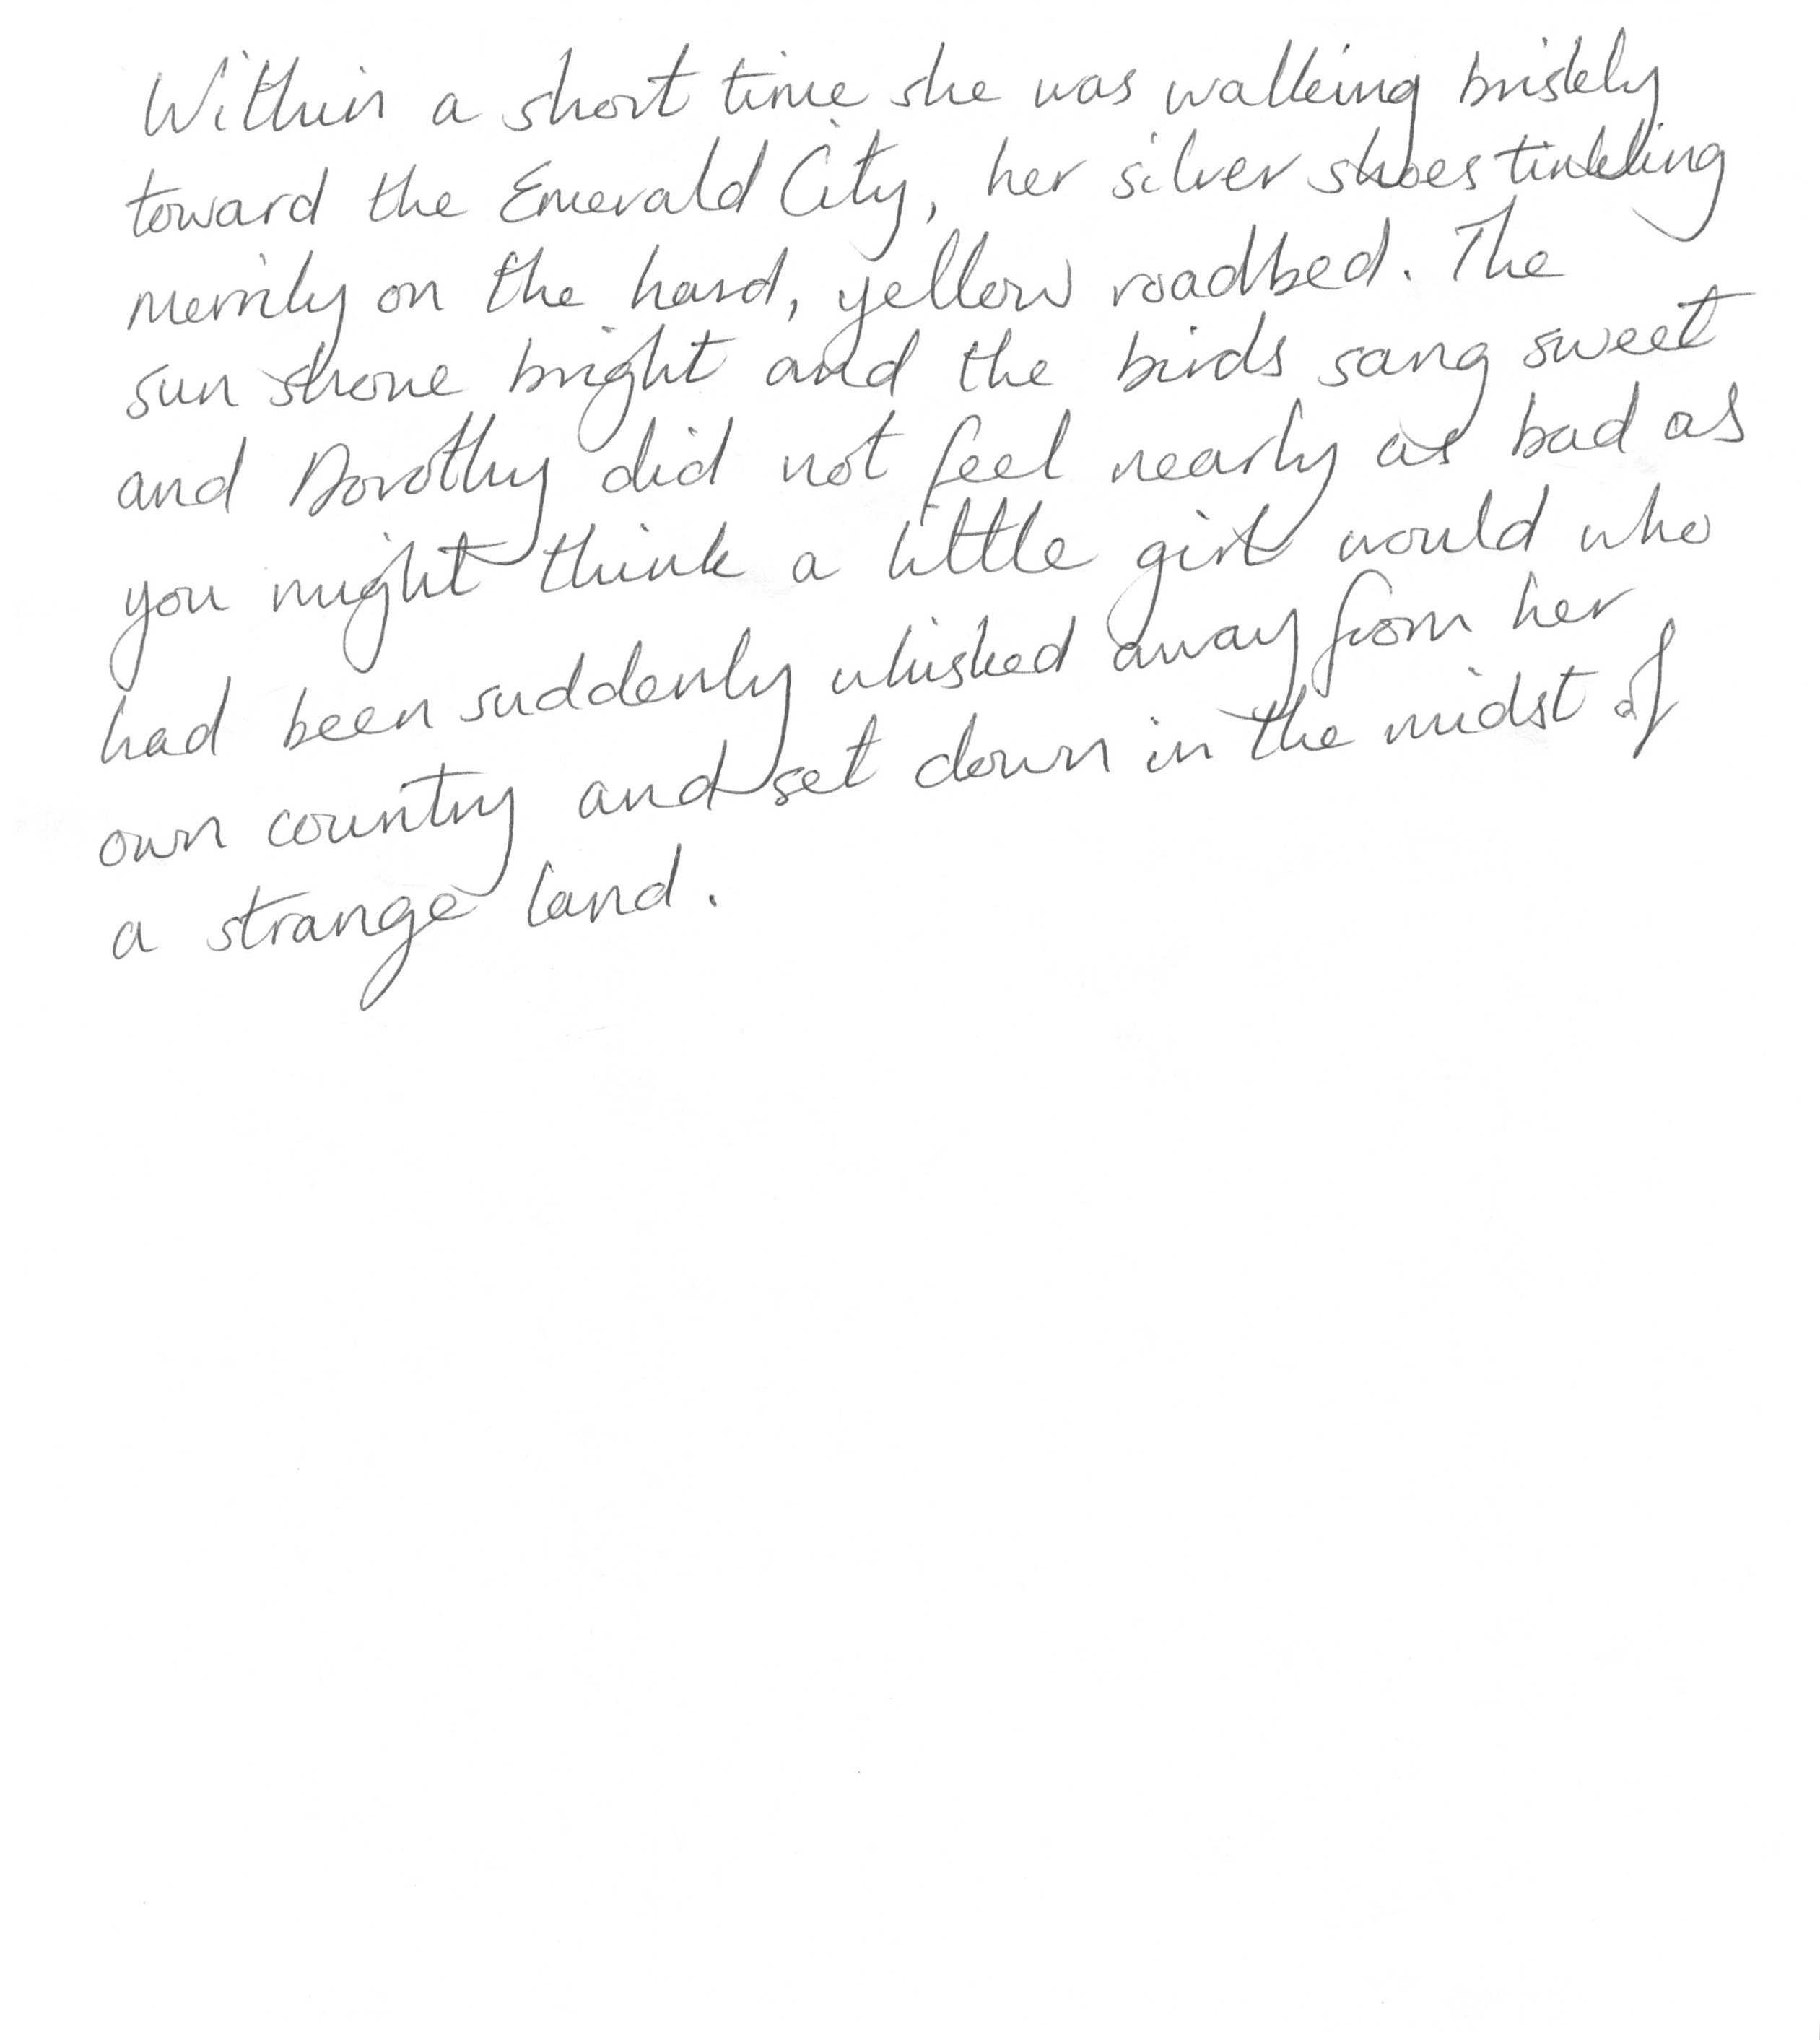 Within a short time she was walking briskly
toward the Emerald City, her silver shoes tinkling
merrily on the hard, yellow roadbed. The
sun shone bright and the birds sang sweet
and Dorothy did not feel nearly as bad as
you might think a little girl would who
had been suddenly whisked away from her
own country and set down in the midst of
a strange land.